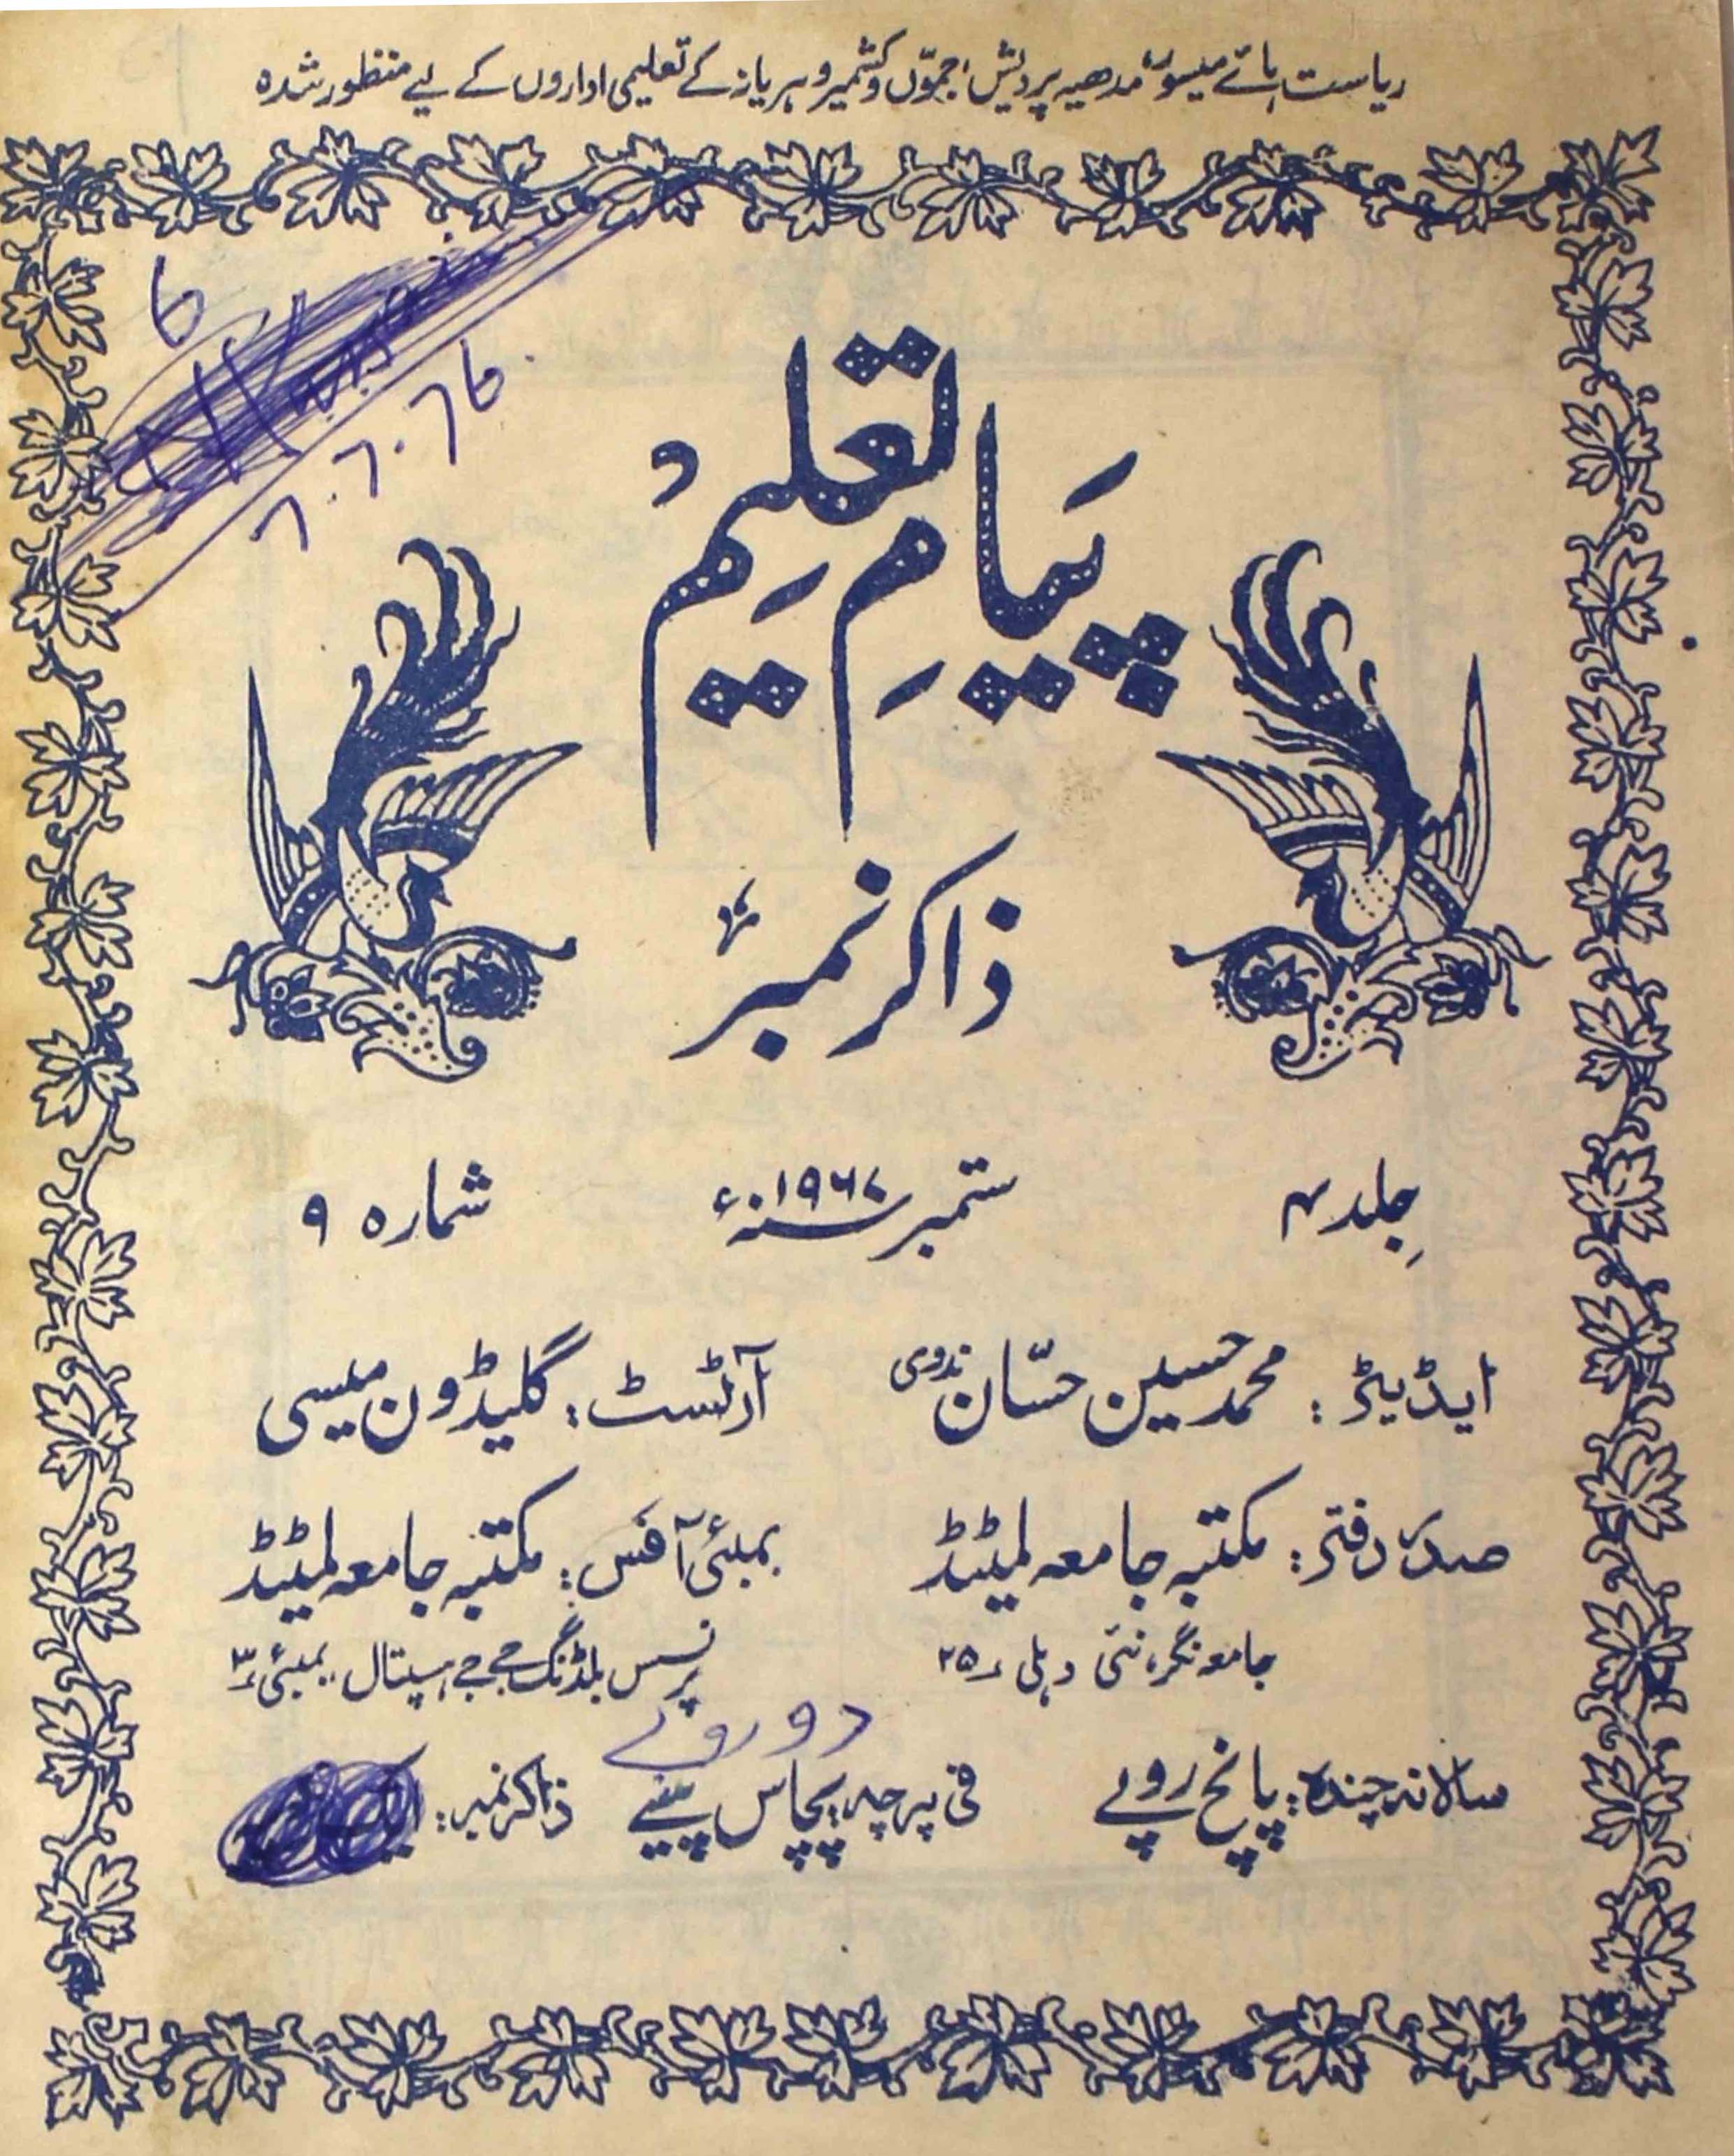 ریاست ہائے میسور، مدھیہ پردیش، جموّں و کشمیر و ہریانہ کے تعلیمی اداروں کے لیے منظور شدہ
6
7.7.76.
پیامِ تعلیم
ذاکر نمبر
جِلد ۴ ستمبر ۱۹۶۷ء شمارہ ۹
ایڈیٹر: محمد حسین حسّان ندوی آرٹسٹ: گلیڈون میسی
صدر دفتر: مکتبہ جامعہ لمیٹڈ بمبئی آفس: مکتبہ جامعہ لمیٹڈ
جامعہ نگر، نئی دہلی ۲۵ پرنسس بلڈنگ جے جے ہسپتال بمبئی ۳
دو روپے
سالانہ چندہ: پانچ روپے فی پرچہ: پچاس پیسے ذاکر نمبر: